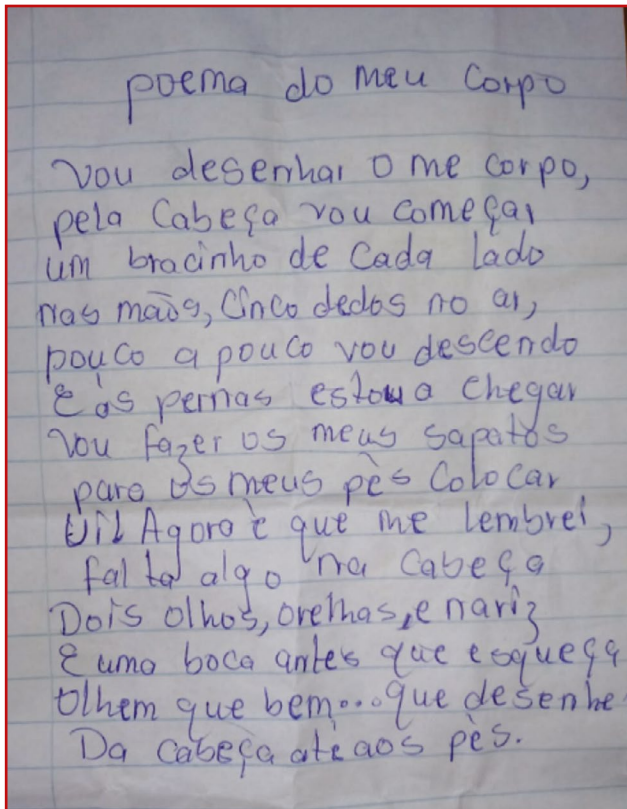 poema do meu Corpo
Vou desenhar o me corpo,
pela Cabeça vou começar
um bracinho de Cada lado
nas mãos, Cinco dedos no ar,
pouco a pouco vou descendo
E às pernas estou a chegar
Vou fazer os meus sapatos
para os meus pès Colocar
Ui! Agora è que me lembrei,
falta algo na Cabeça
Dois olhos, orelhas, e nariz
E uma boca antes que esqueça
Olhem que bem... que desenhe
Da Cabeça atè aos pès.